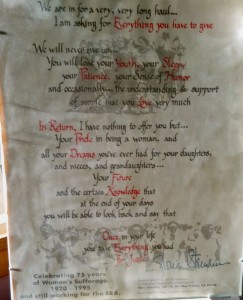 We are in for a very, very long haul...
I am asking for Everything you have to give
We will never give up...
You will lose your Youth, your Sleep
your Patience, your Sense of Humor
and occasionally... the understanding & support
of people that you Love very much
In Return, I have nothing to offer you but...
Your Pride in being a woman, and
all your Dreams you've ever had for your daughters,
and nieces, and granddaughters...
Your Future
and the certain Knowledge that
at the end of your days
you will be able to look back and say that
Once in your life
you gave Everything you had
Celebrating 75 years
of Women's Suffrage
1920 1995
and still working for the ERA.